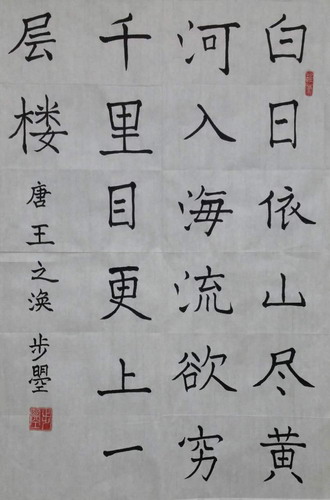 白日依山尽黄
河入海流欲穷
千里目更上一
层楼
唐王之涣 步曌